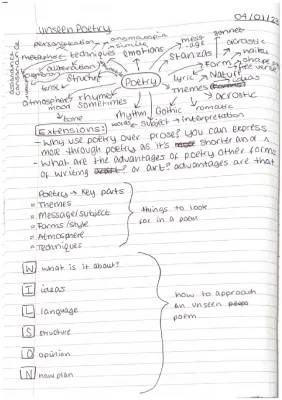 04/01/22
Unseen Poetry
personification
onomatopoeia
simile
metaphor
techniques
emotions
alliteration
assonance
consonance
structure
lyric
atmosphere
mood
tone
rhyme
sometimes
Poetry
rhythm
words
subject
Gothic
interpretation
romantic
message
stanzas
sonnet
acrostic
Form
free verse
lyric
Nature
Themes
ideas
acrostic
Extensions:
- Why use poetry over prose? you can express
more through poetry as it's shorter and
- What are the advantages of poetry other forms
of writing or art? advantages are that
Poetry → Key parts
= Themes
= Message/subject
= Forms/style
= Atmosphere
= Techniques
things to look
for in a poem
W what is it about?
I ideas
L language
S structure
O opinion
N now plan
how to approach
an unseen
poem